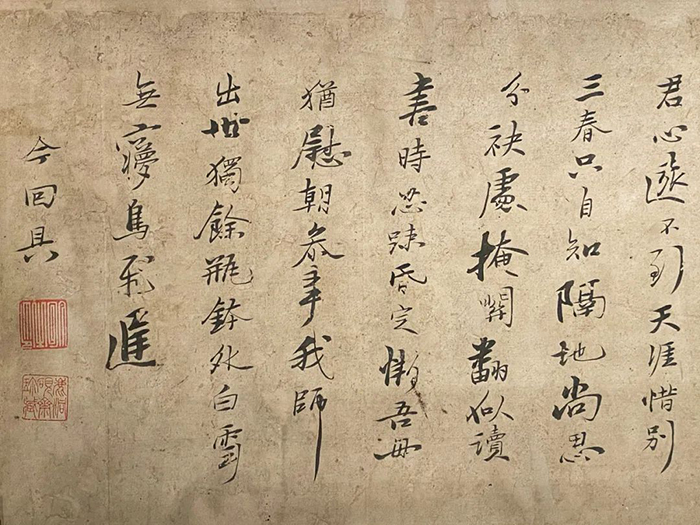 君心遠不到天涯惜別
三春只自知隔地尚思
分袂處掩關翻似讀
書時恐踈昏定慚吾母
猶慰朝叅事我師
出世獨餘瓶鉢外白雲
無夢鳥飛遲
今回具